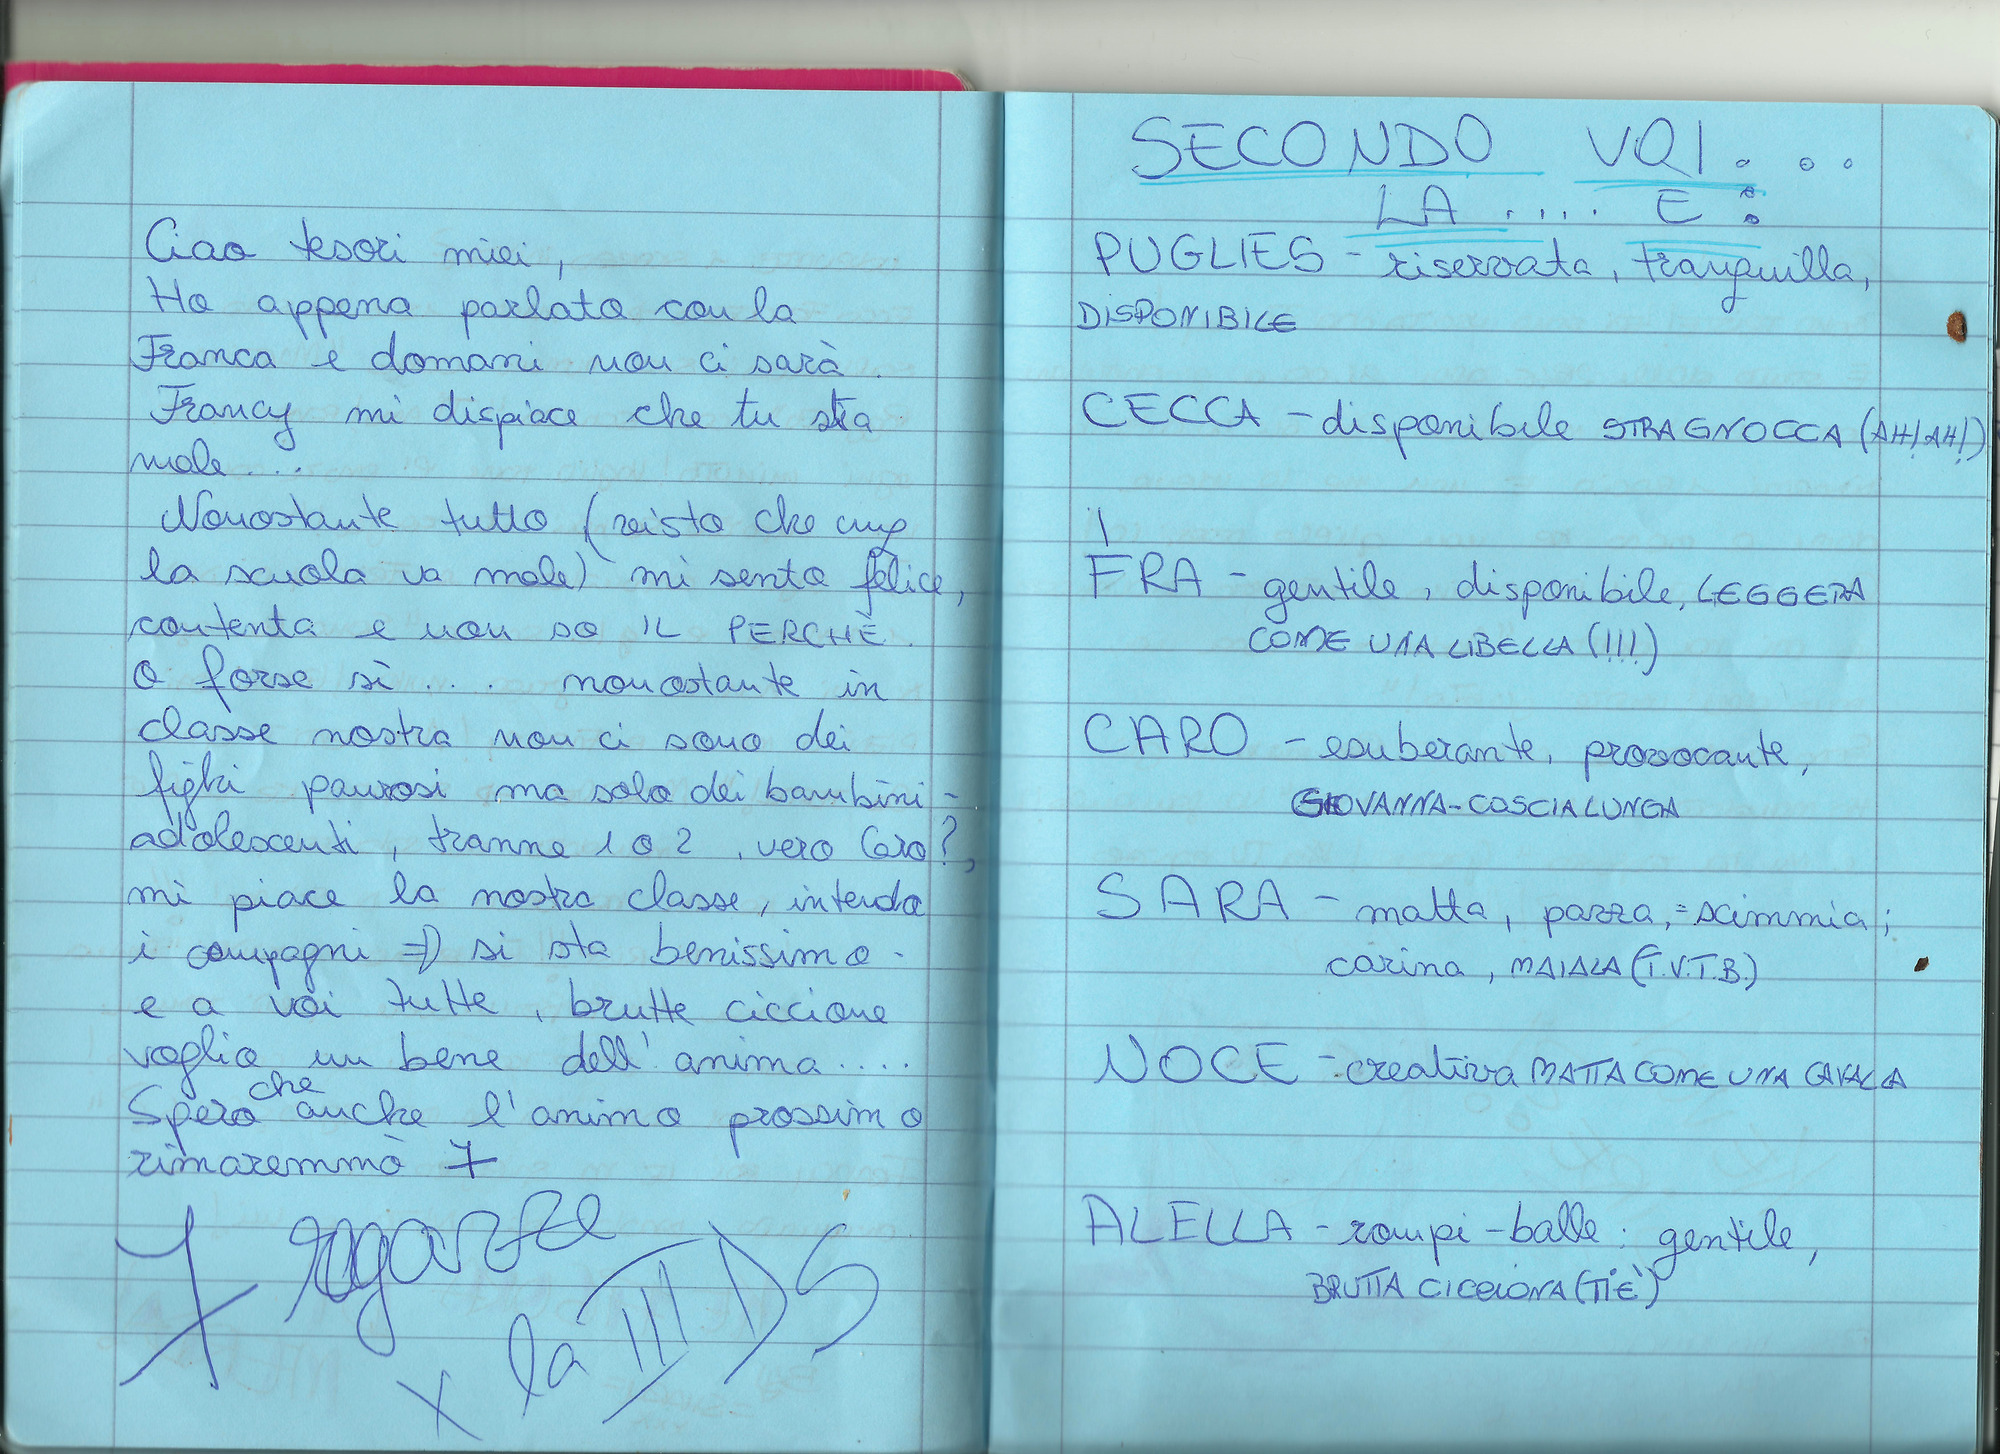 Ciao tesori miei,
Ho appena parlato con la
Franca e domani non ci sarà.
Francy mi dispiace che tu stia
male...
Nonostante tutto (visto che cmq
la scuola va male) mi sento felice,
contenta e non so IL PERCHÈ.
O forse sì .... nonostante in
classe nostra non ci sono dei
fighi paurosi ma solo dei bambini-
adolescenti, tranne 1 o 2, vero Caro?,
mi piace la nostra classe, intendo
i compagni => si sta benissimo.
e a voi tutte, brutte ciccione
voglio un bene dell'anima....
Spero che anche l'animo prossimo
rimaremmo 7
7 ragazze
x la III DS
SECONDO VOI...
LA .... E :
PUGLIES - riservata, tranquilla,
DISPONIBILE
CECCA - disponibile STRAGNOCCA (AH! AH!)
FRA - gentile, disponibile, LEGGERA
COME UNA LIBELLA (!!!)
CARO - esuberante, provocante,
GIOVANNA-COSCIALUNGA
SARA - matta, pazza, = scimmia;
carina, MAIALA (T.V.T.B.)
NOCE - creativa MATTA COME UNA CAVALLA
ALELLA - rompi-balle: gentile,
BRUTTA CICCIONA (TIÈ)